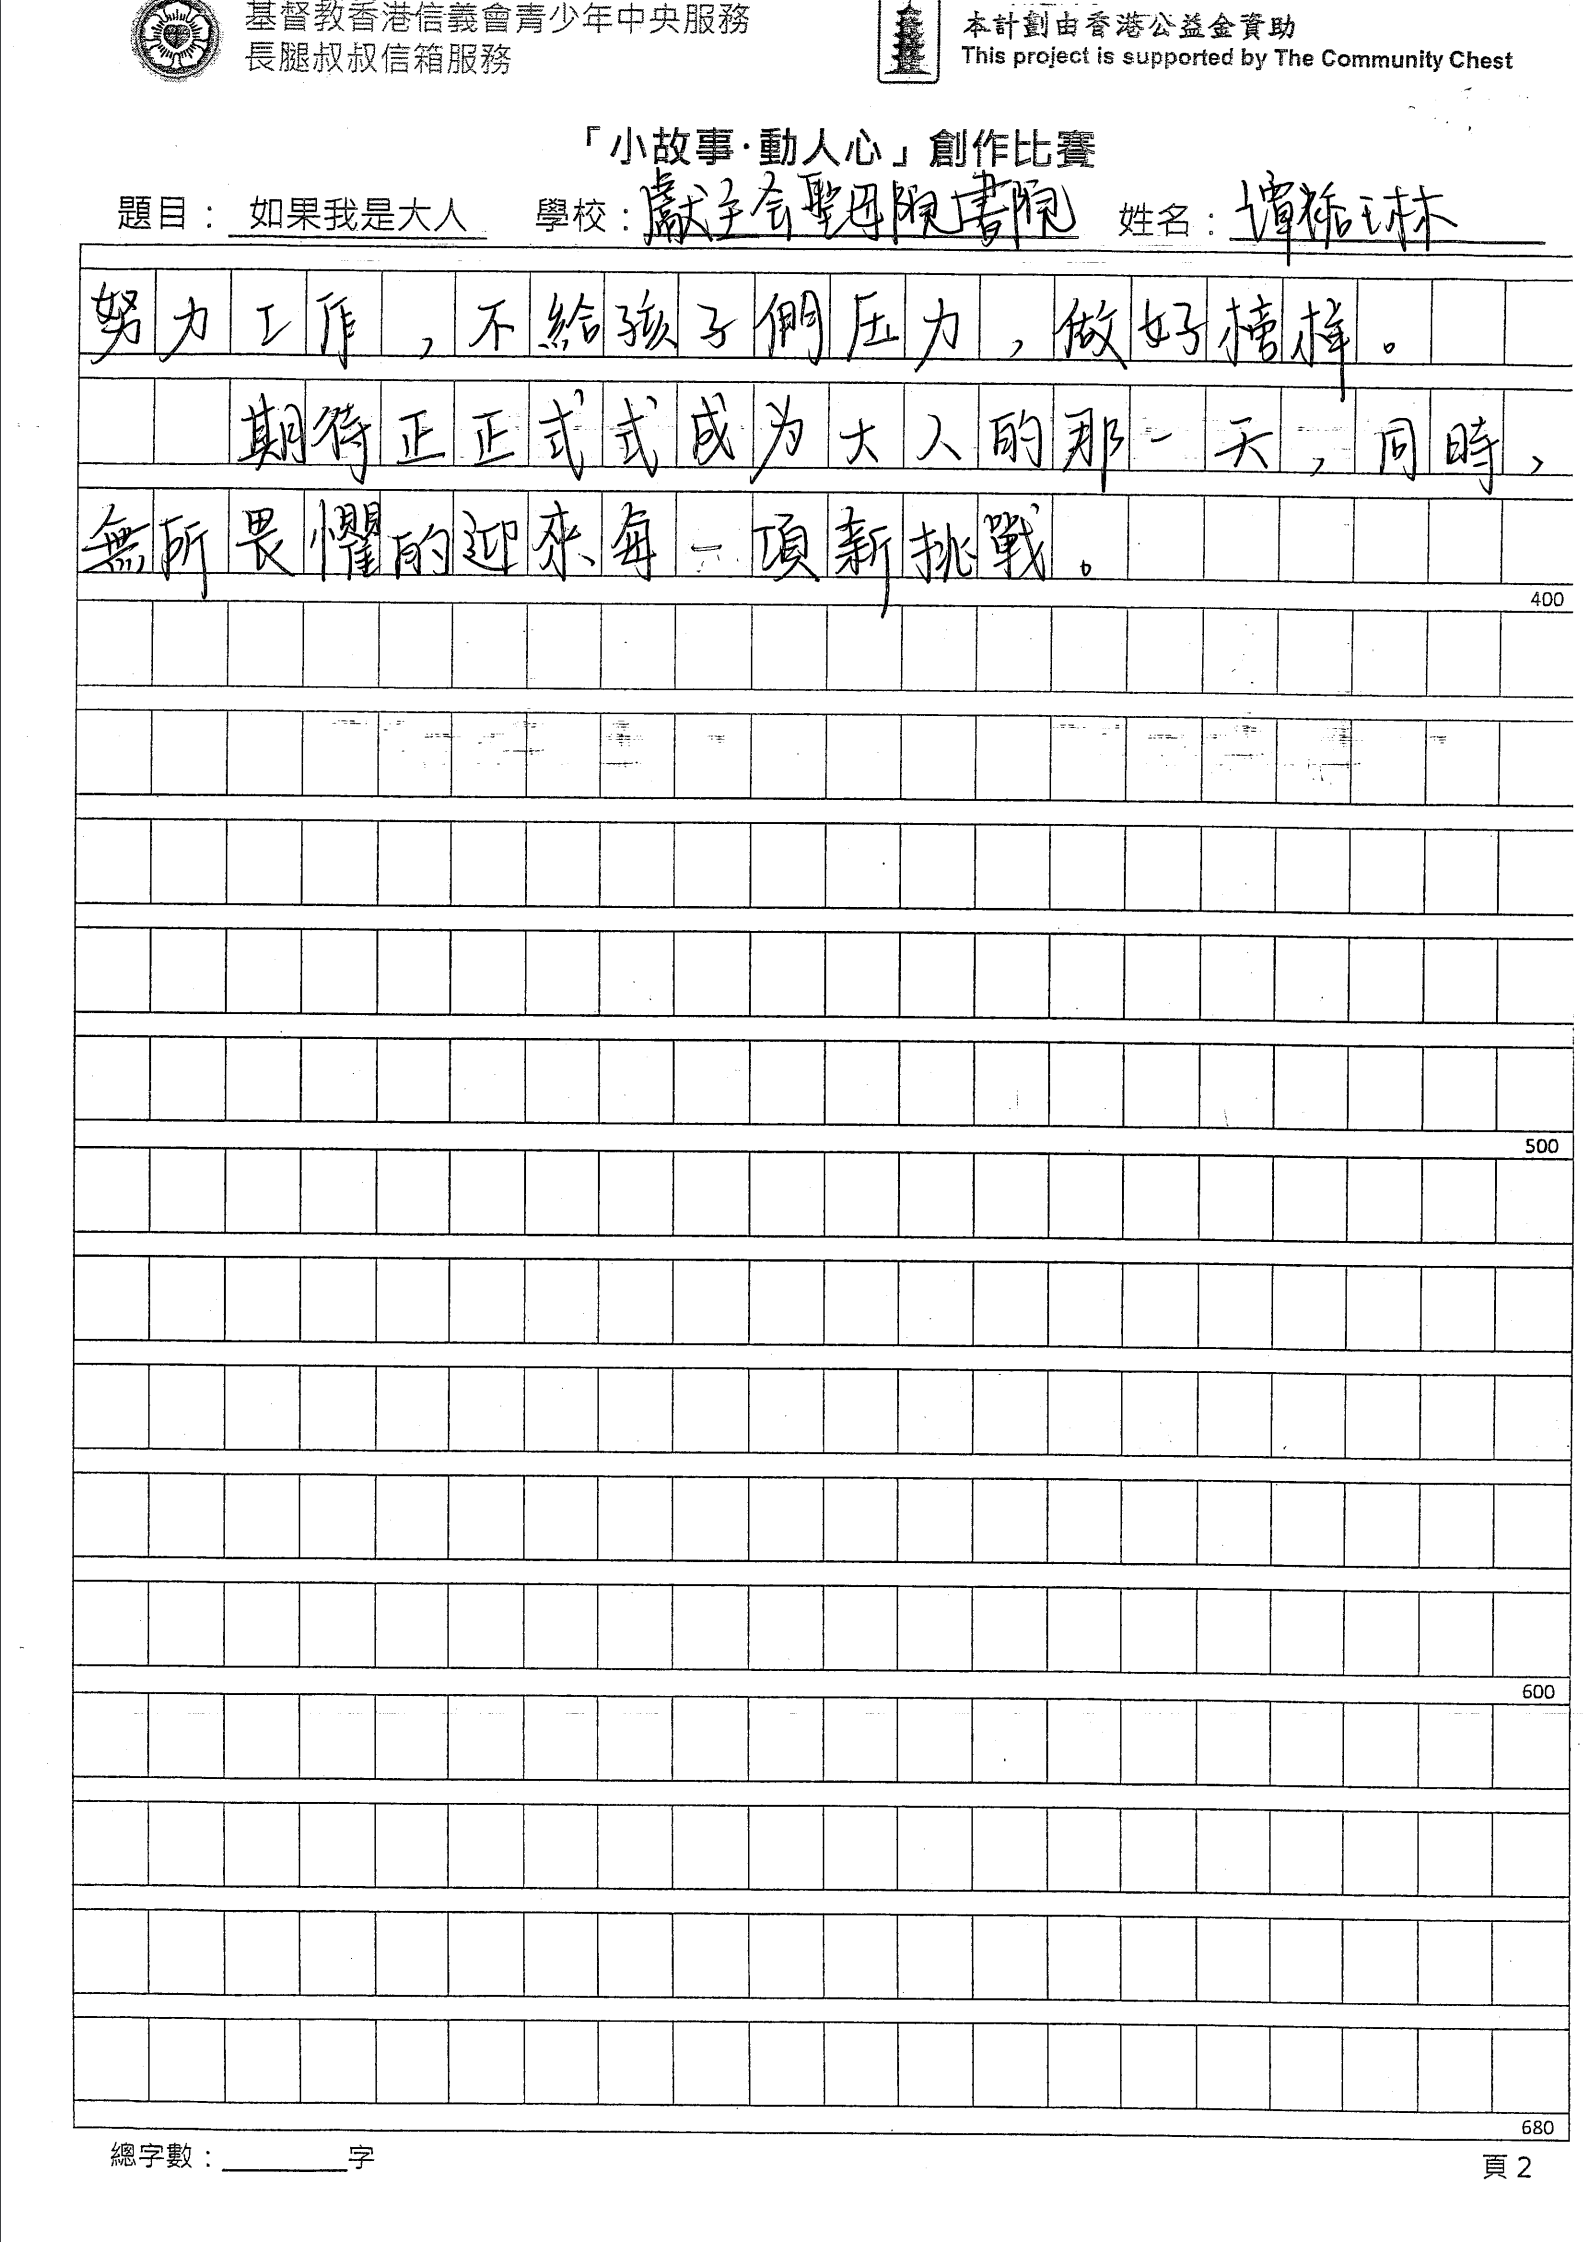 基督教香港信義會青少年中央服務
長腿叔叔信箱服務
本計劃由香港公益金資助
This project is supported by The Community Chest
「小故事·動人心」創作比賽
題目： 如果我是大人 學校：獻主会聖母院書院 姓名：譚祐琳
努力工作，不給孩子們压力，做好榜样。
期待正正式式成为大人的那一天，同時，
無所畏懼的迎來每一項新挑戰。
400
500
600
680
總字數：字
頁 2